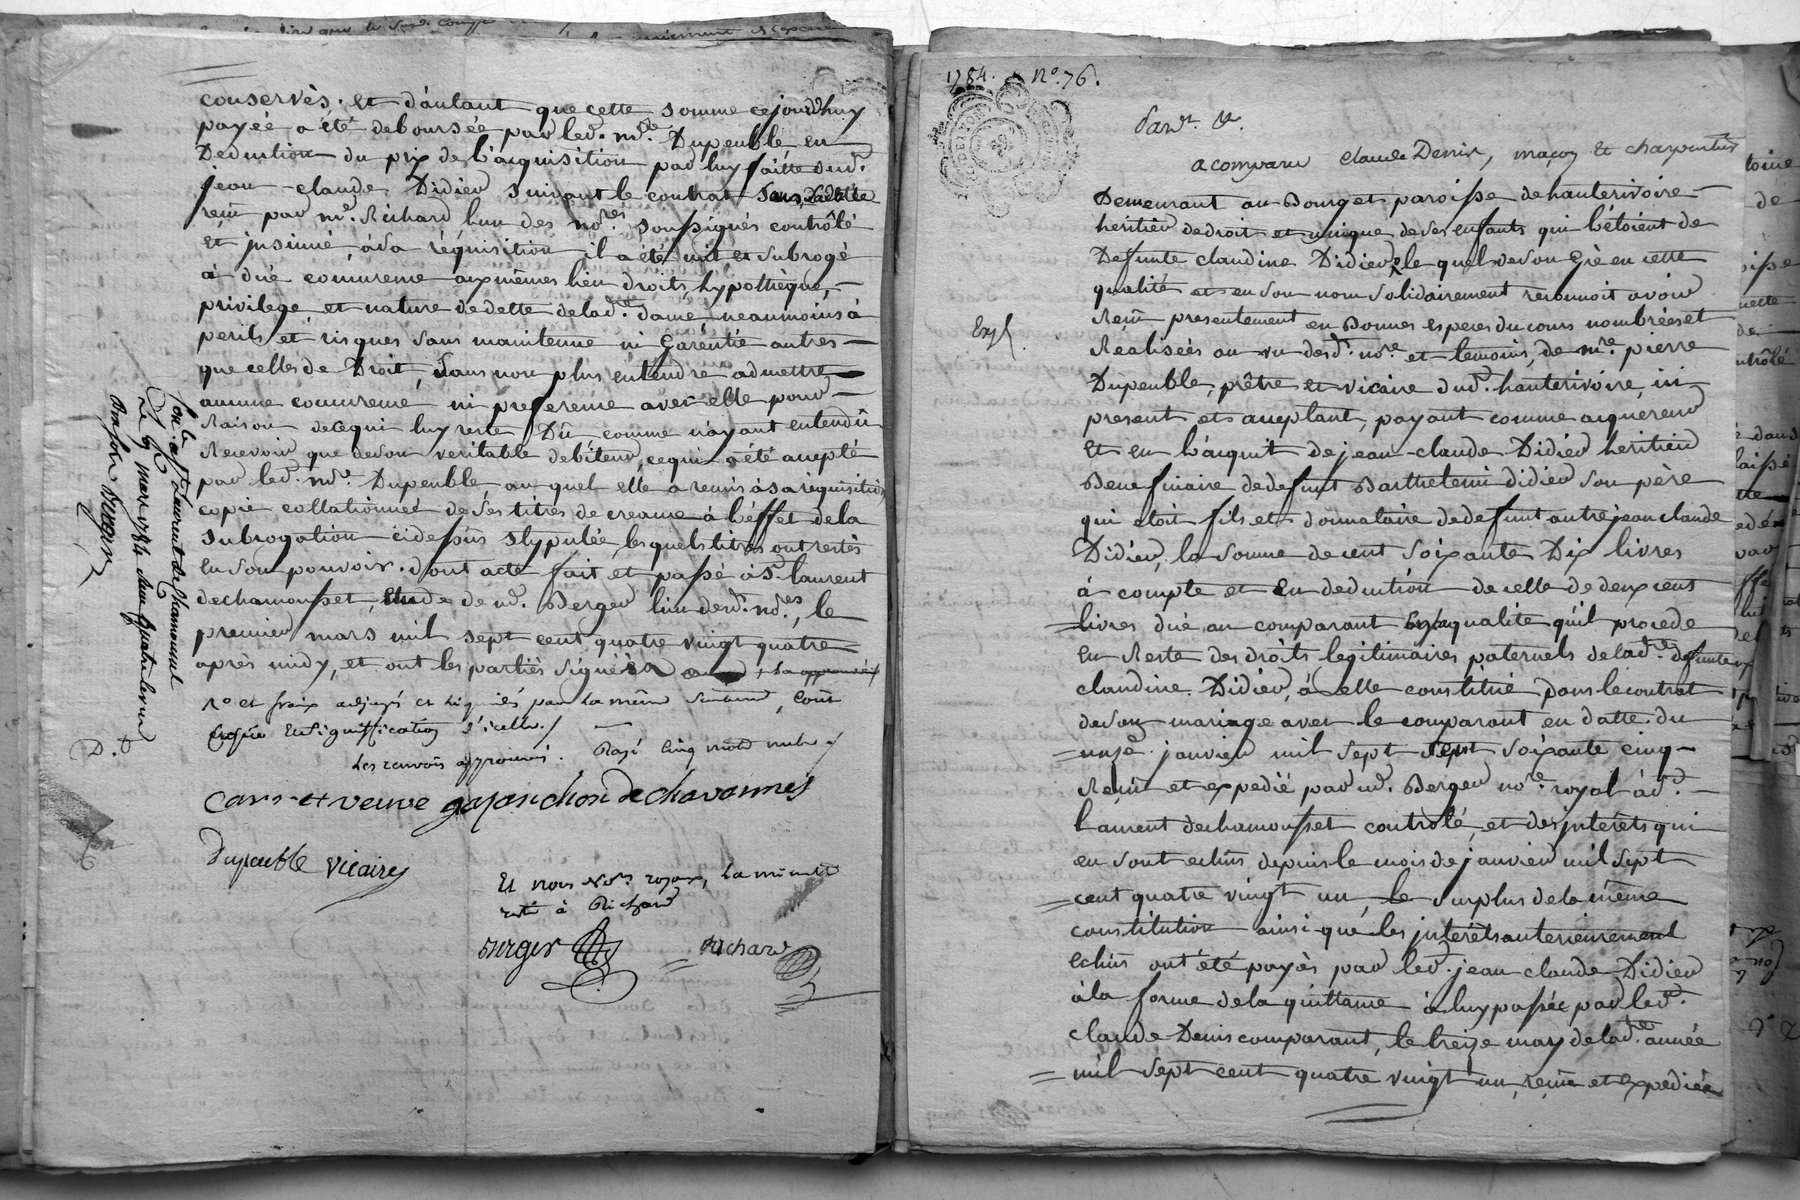 conservés. Et d'autant que cette somme cejourd'huy
payée a été deboursée par led. mre. Dupeuble en
Deduction du prix de l'acquisition par luy faitte dud.
jean-claude Didier suivant le contrat
reçu par me. Richard l'un des nores. soussignés contrôlé
et insinué, à sa réquisition il a été mis et subrogé
à düe concurrence aux mêmes lieu droits, hypothèque,
privilege, et nature de dette de lad. dame neanmoins à
perils et risques sans maintenue ni garentie autres
que celles de Droit, sans non plus entendre admettre
aucune concurrence, ni preference avec elle pour
Raison de ce qui luy reste Dû comme n'ayant entendu
Recevoir que de son veritable debiteur, ce qui a été accepté
par led. mre. Dupeuble, au quel elle a remis à sa réquisition
copie collationnée de ses titres de creance à l'éffet de la
subrogation cidessus stypulée, lesquels titres ont restés
en son pouvoir. dont acte fait et passé à St. laurent
dechamousset, Etude de me. Berger l'un desd. nores, le
premier mars mil sept cent quatre vingt quatre
après midy, et ont les parties signées
et fraix adjugés et liquidés par la même sentence, cout
copie et signiffication d'icelle./
Les renvois approuvés. Rayé cinq mots nuls ./
Cars et veuve gayanchon de chavannes
Dupeuble vicaire
Et nous Nores. royaux, la minute
restée à Richard
Berger Richard
Conlé. à St. Laurent de Chamousset
Le 9 mars 1784
Berger
D. d.
1784. No. 76.
Pard. &.
a comparu Claude Denis, maçon et charpentier
Demeurant au Bourg et paroisse de hauterivoire
heritier de droit et unique de ses enfants qui l'étoient de
Defunte claudine Didier, le quel de son Gré en cette
qualité et en son nom solidairement reconnoit avoir
Reçu presentement en Bonnes especes du cours nombrées et
Realisées au vu desd. nore. et temoins, de mre. pierre
Dupeuble, prêtre et vicaire dud. hauterivoire, ici
present et acceptant, payant comme acquéreur
et en l'acquit de jean-claude Didier heritier
Beneficiaire de defunt Barthelemi didier son père
qui étoit fils et donnataire de defunt autre jean claude
Didier, la somme de cent soixante Dix livres
à compte et en deduction de celle de deux cens
livres düe au comparant en sa qualité qu'il procede
en Reste des droits legitimaires paternels de lad. defunte
claudine Didier, à elle constitué dans le contrat
de son mariage avec le comparant en datte du
onze janvier mil sept cent soixante cinq
Reçu et expedié par me. Berger nore. royal à St.
laurent dechamousset contrôlé, et des interêts qui
en sont echus depuis le mois de janvier mil sept
cent quatre vingt un, le surplus de la même
constitution ainsi que les interêts anterieurement
echus ont été payés par led. jean claude Didier
à la forme de la quittance à luy passée par led.
claude Denis comparant, le treize may de lad. année
mil sept cent quatre vingt un, reçue et expediée